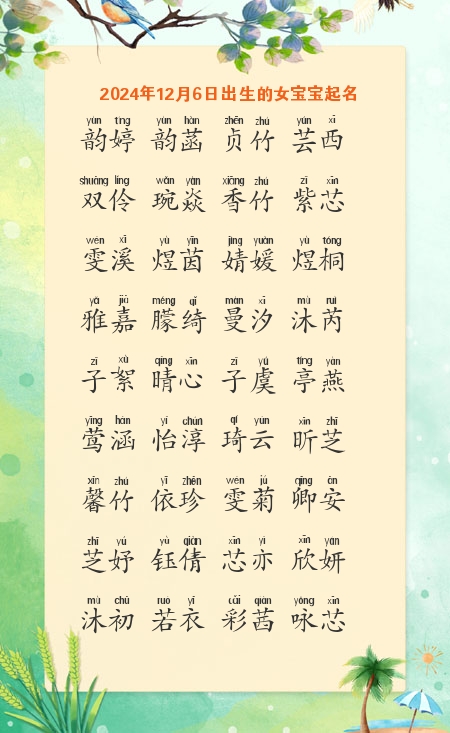 2024年12月6日出生的女宝宝起名
yùn tíng yùn hàn zhēn zhú yún xī
韵婷 韵菡 贞竹 芸西
shuāng líng wǎn yàn xiāng zhú zǐ xīn
双伶 琬焱 香竹 紫芯
wén xī yù yīn jìng yuàn yù tóng
雯溪 煜茵 婧媛 煜桐
yǎ jiā méng qǐ màn xī mù ruì
雅嘉 朦绮 曼汐 沐芮
zǐ xù qíng xīn zǐ yú tíng yàn
子絮 晴心 子虞 亭燕
yīng hán yí chún qí yún xīn zhī
莺涵 怡淳 琦云 昕芝
xīn zhú yī zhēn wén jú qīng ān
馨竹 依珍 雯菊 卿安
zhī yú yù qiàn xīn yì xīn yán
芝妤 钰倩 芯亦 欣妍
mù chū ruò yī cǎi qiàn yǒng xīn
沐初 若衣 彩茜 咏芯